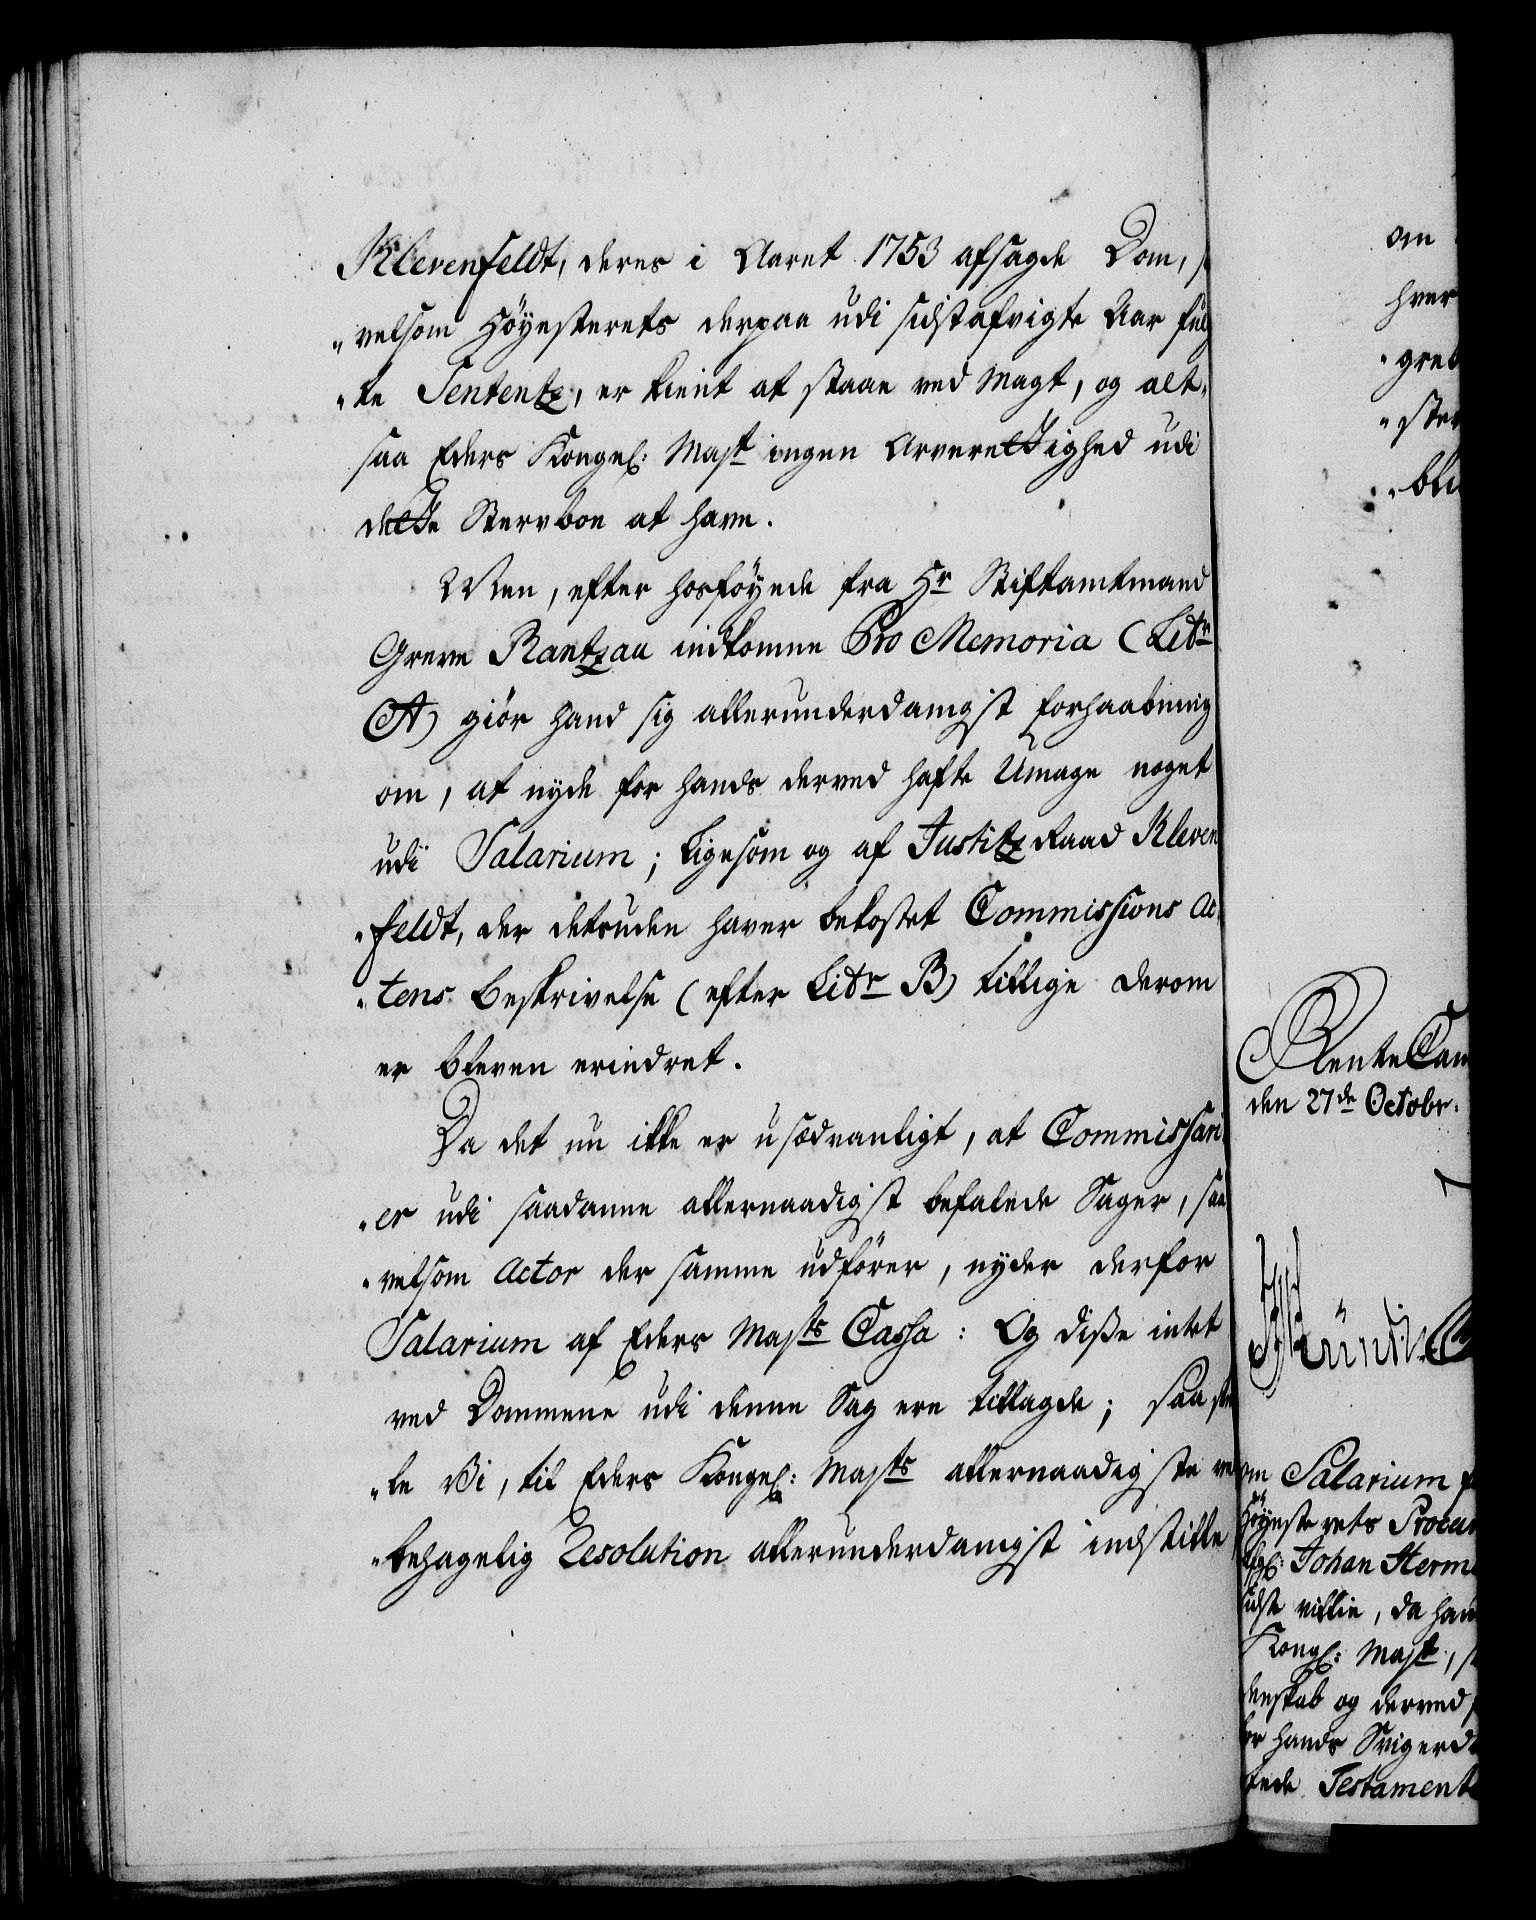 Klevenfeldt, deres i Aaret 1753 afsagde Dom, s
„velsom Höyesterets derpaa udi sidstafvigte Aar fuld
„te Sententz, er kient at staae ved Magt, og alt„
saa Eders Kongel: Mayt ingen Arverettighed udi
dette Stervboe at have.
Men, efter hosföyede fra Hr Stiftamtmand
Greve Rantzau indkomne Pro Memoria (Litr
A) giör hand sig allerunderdanigst forhaabning
om, at nyde for hands derved hafte Umage noget
udi Salarium; ligesom og af Justitz Raad Kleven
„feldt, der desuden haver bekostet Commissions Ac„
„tens beskrivelse (efter Litr B) tillige derom
er bleven erindret.
Da det nu ikke er usædvanligt, at Commissari„
„er udi saadanne allernaadigst befalede Sager, saa
„velsom Actor der samme udförer, nyder derfor
Salarium af Eders Mayts Cassa: Og disse intet
ved Dommene udi denne Sag ere tillagde; saa skul
„le Vi, til Eders Kongel: Mayts allernaadigste vel
„behagelig Resolution allerunderdanigst indstille
om
hver
„gret
„ster
„bli
Rente Cam
den 27de Octobr:
om Salarium f
Höyeste rets Procur
Johan Herm
sidste villie, da hav
Kongl: Mayt, s
denskab og derved
for hands Svigerd
tede Testament